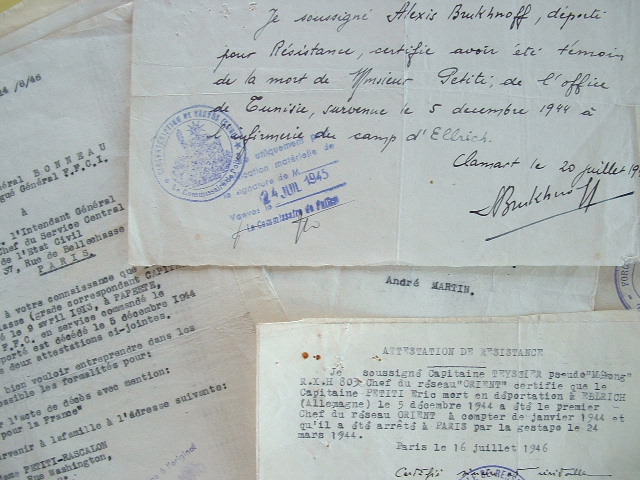 Je soussigné Alexis Brukhnoff, déporté
pour Résistance, certifie avoir été témoin
de la mort de Monsieur Petiti, de l'office
de Tunisie, survenue le 5 decembre 1944 à
l'infirmerie du camp d'Ellrich.
Clamart le 20 juillet 19
ABrukhnoff
Le Commissaire de Police
uniquement pour
matérielle de
la signature de M
24 JUIL 1945
Vanves le
Le Commissaire de Police
/6/46
énéral BONNEAU
gué Général F.F.C.I.
à
l'Intendant Général
Chef du Service Central
de l'Etat Civil
37, Rue de Bellechasse
PARIS.
à votre connaissance que
lasse (grade correspondant CAPIT
é le 9 avril 1913, à PAPEETE,
F.F.C. en service commandé le
porté est décédé le 5 décembre 1944
deux attestations ci-jointes.
bien vouloir entreprendre dans les
possible les formalités pour:
l'acte de décès avec mention:
pour la France"
parvenir à lafamille à l'adresse suivante:
PETITI-RASCALON
Rue Washington,
André MARTIN.
ATTESTATION DE RESISTANCE
Je soussigné Capitaine TEYSSIER pseudo"Mékong"
R.X.H 803 Chef du réseau"ORIENT" certifie que le
Capitaine PETITI Eric mort en déportation à EBLRICH
(Allemagne) le 5 décembre 1944 a été le premier
Chef du Réseau ORIENT à compter de janvier 1944 et
qu'il a été arrêté à PARIS par la gestapo le 24
mars 1944.
Paris le 16 juillet 1946
Certifié